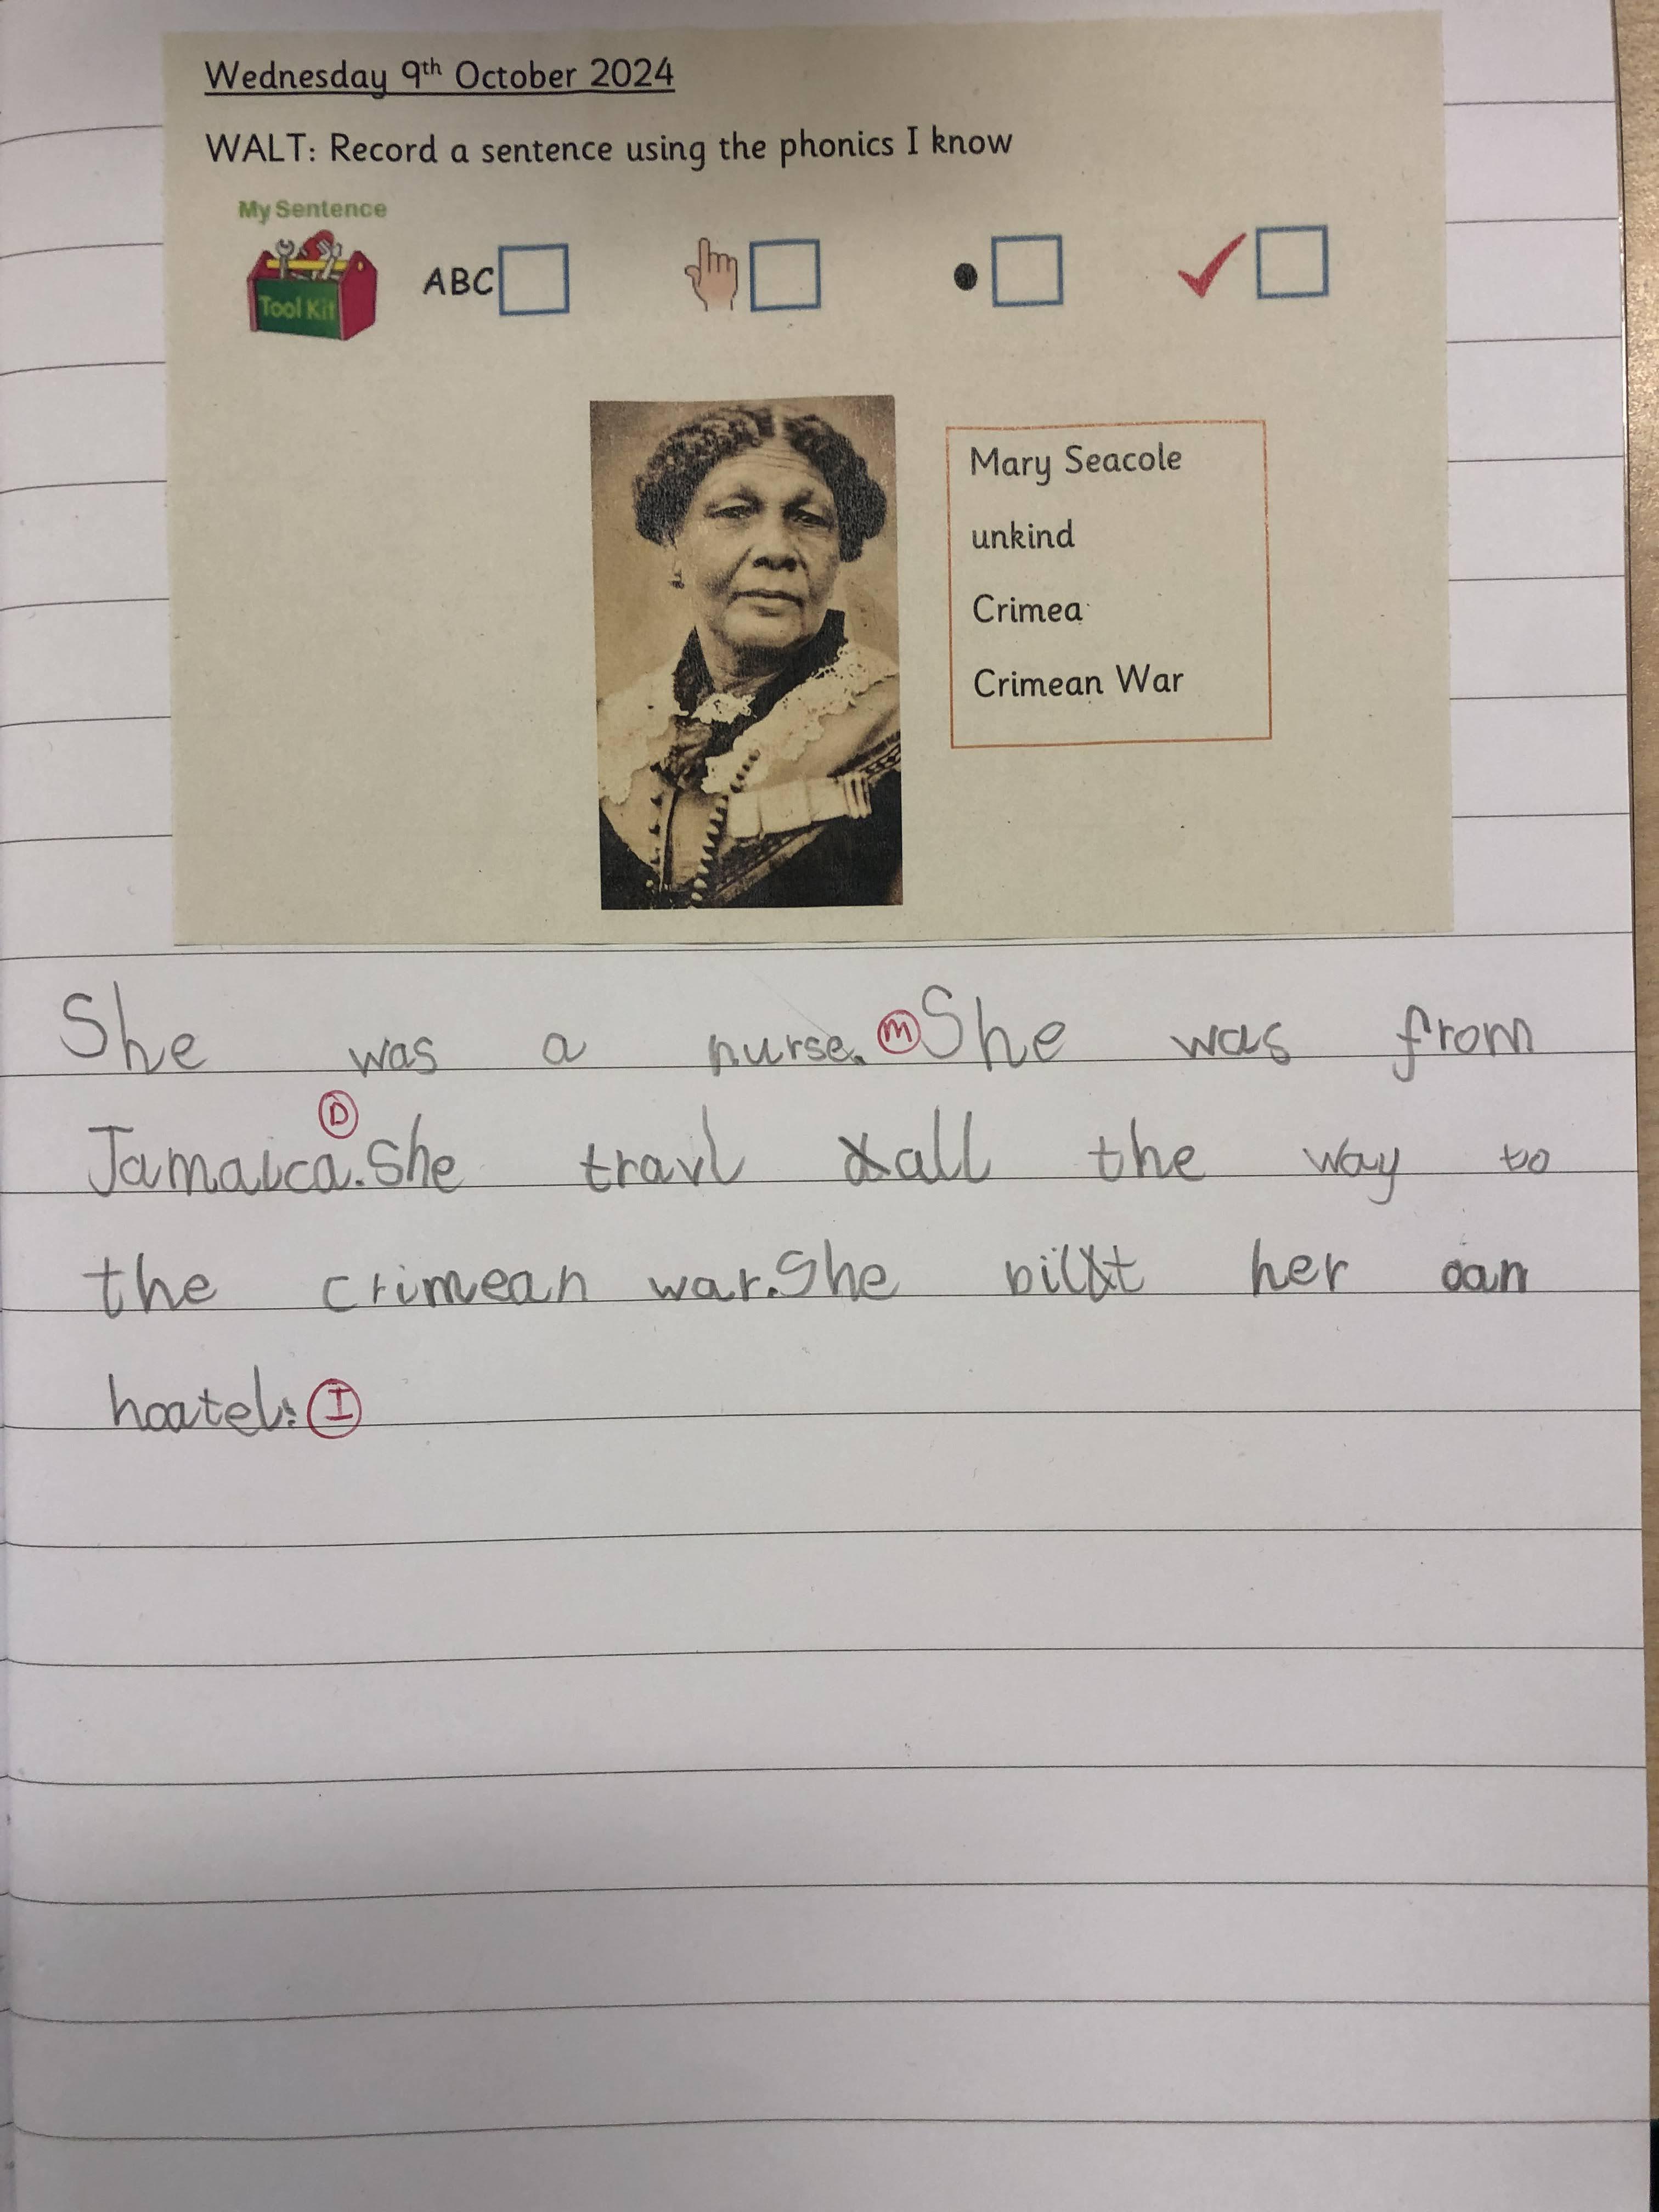 Wednesday 9th October 2024
WALT: Record a sentence using the phonics I know
My Sentence
Tool Kit
ABC
Mary Seacole
unkind
Crimea
Crimean War
She was a nurse. M She was from
D
Jamaica. She travl all the way to
the crimean war. She bilt her oan
hoatel. I